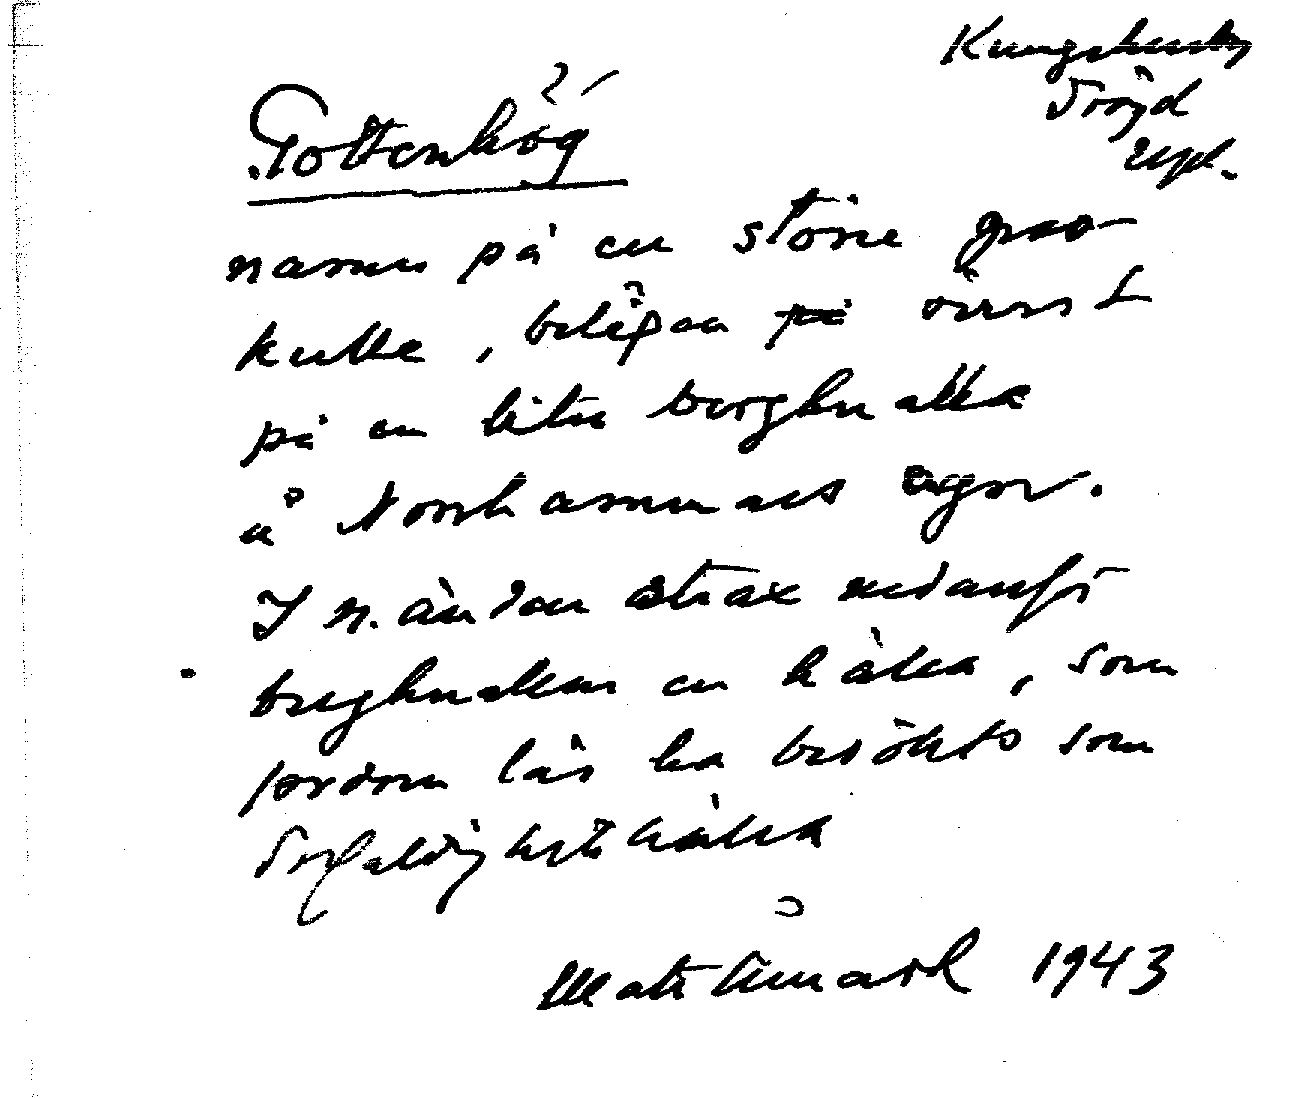 Kungshusby
Tröjd
Upl.
Tottenhög
namn på en större grav-
kulle, belägen på överst
på en liten bergknalle
å Norrhammars ägor.
I n. ändan strax nedanför
bergknallen en källa, som
fordom lär ha besökts som
trefaldighetskälla
Mats Åmark 1943